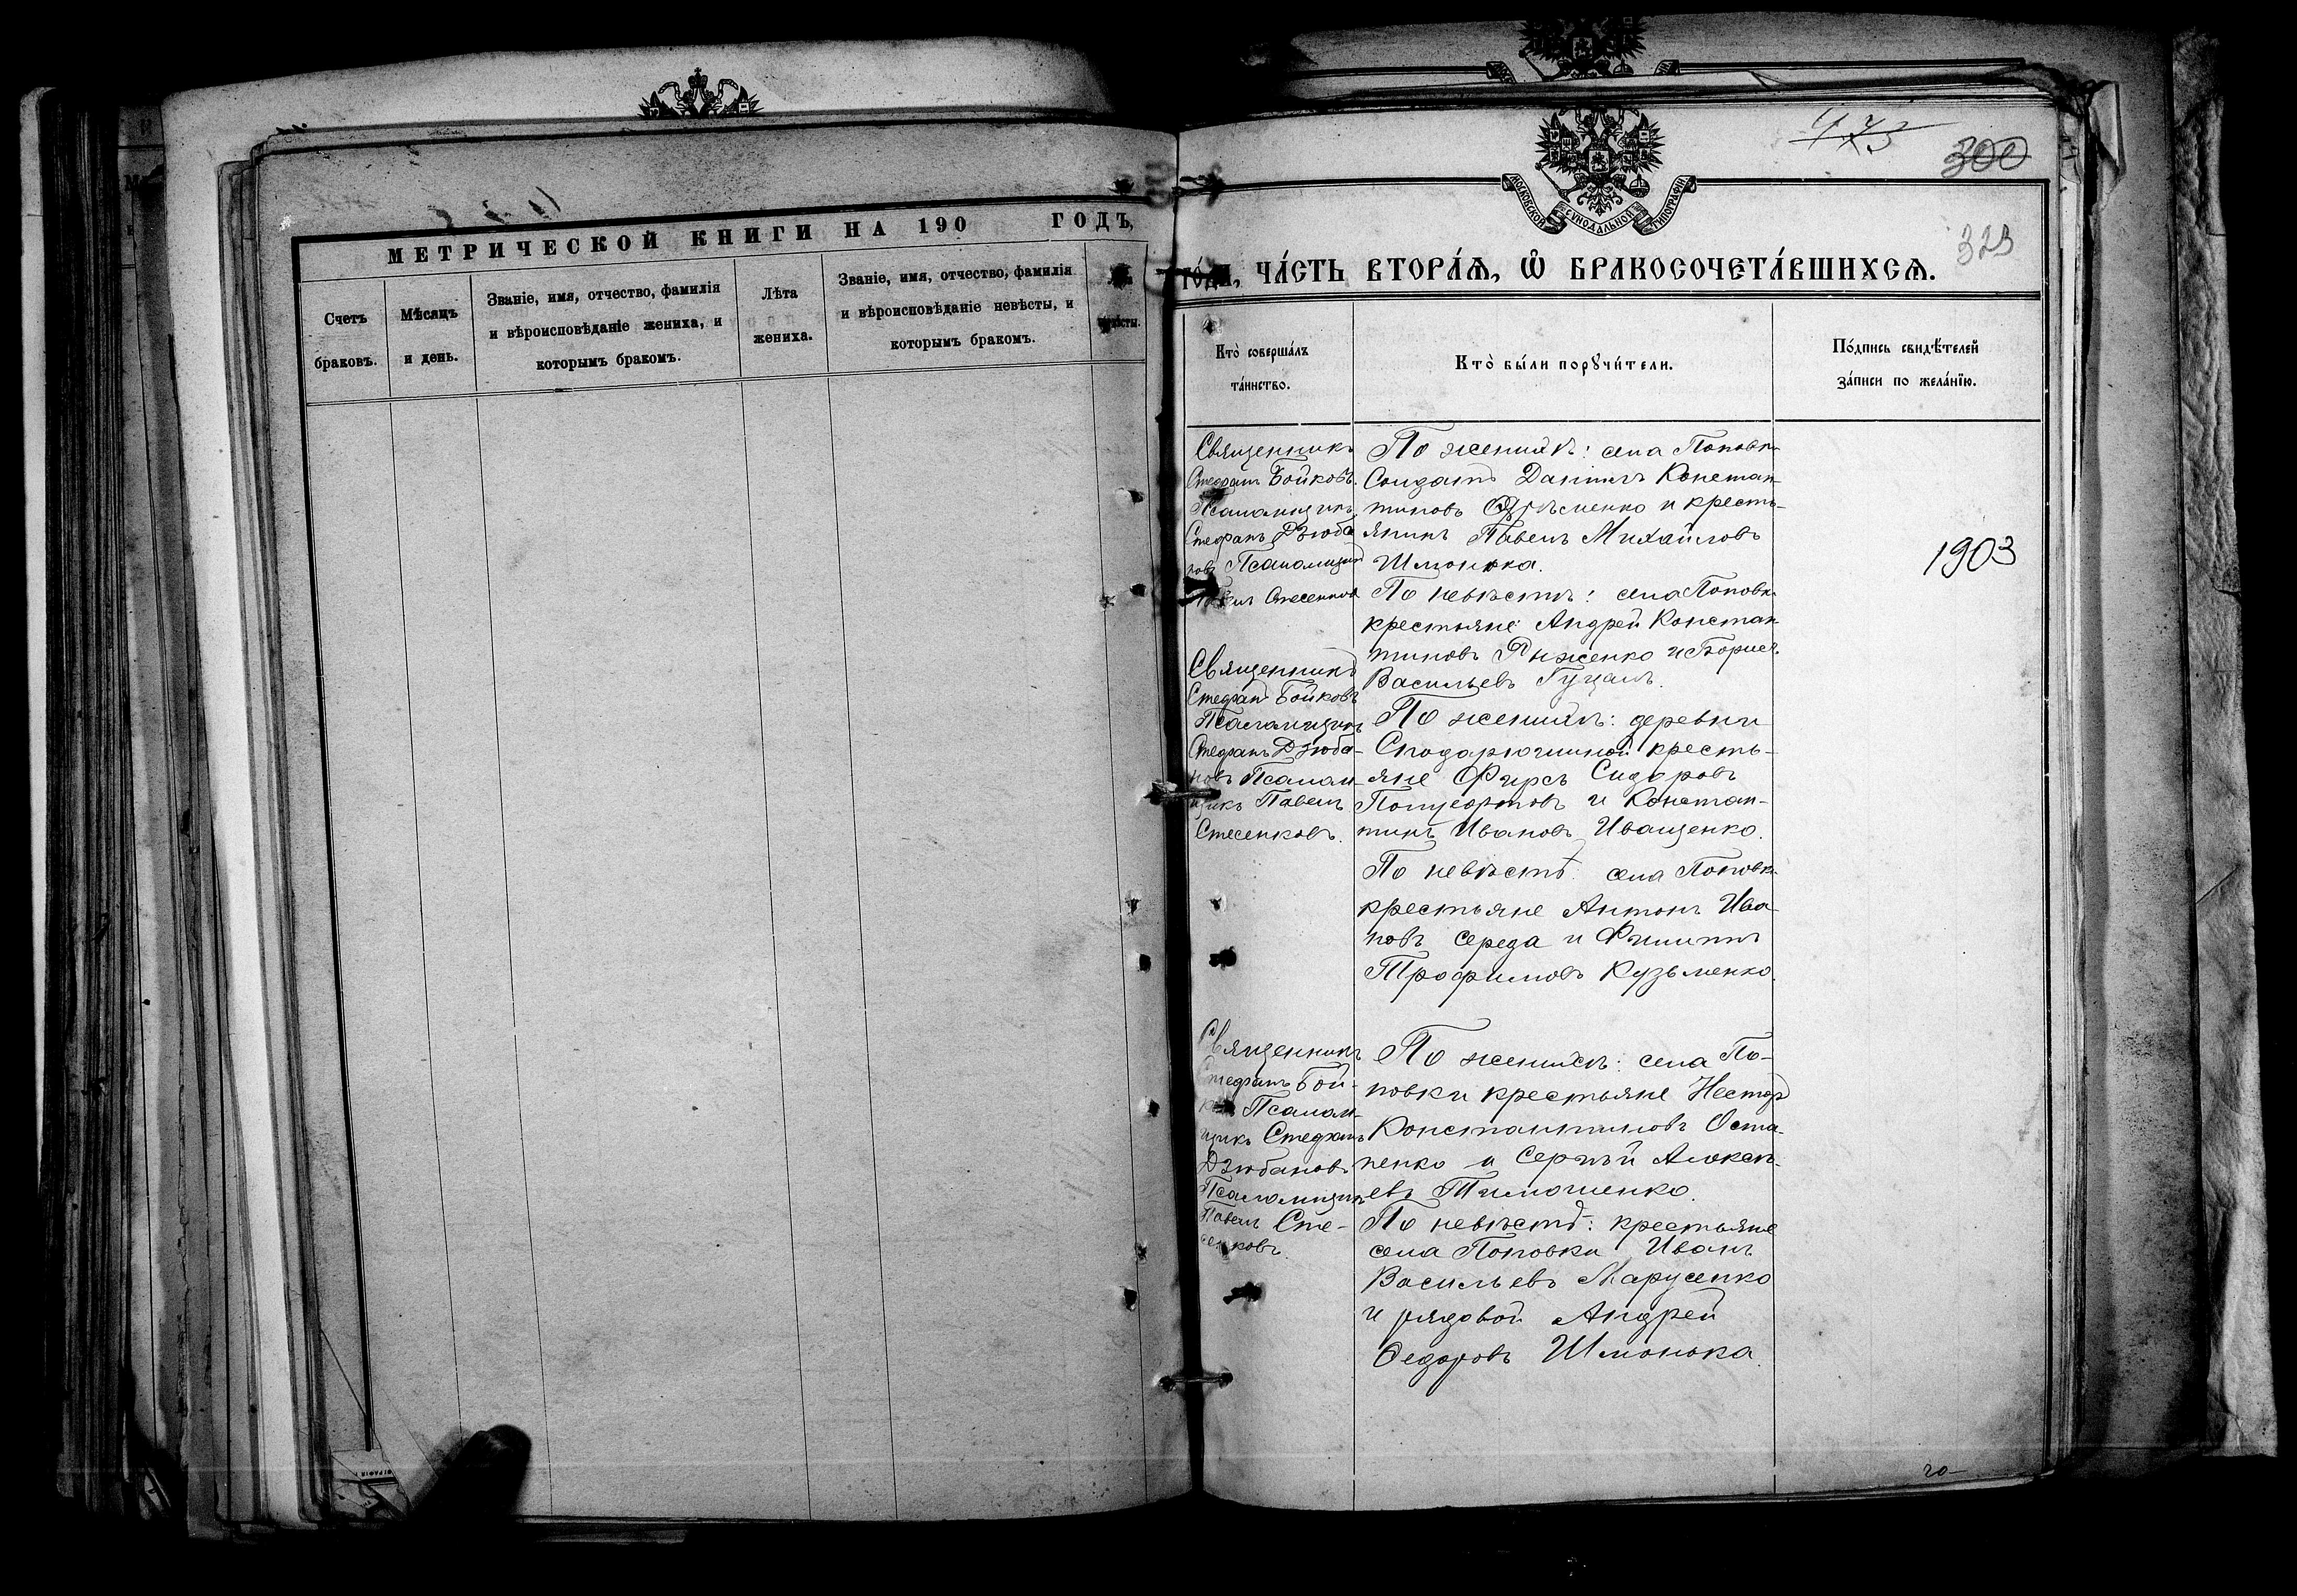 МЕТРИЧЕСКОЙ КНИГИ НА 190 ГОДЪ,
Счетъ
браковъ.
Мѣсяцъ
и день.
Званіе, имя, отчество, фамилія
и вѣроисповѣданіе жениха, и
которымъ бракомъ.
Лѣта
жениха.
Званіе, имя, отчество, фамилія
и вѣроисповѣданіе невѣсты, и
которымъ бракомъ.
473
300
МОСКОВСКОЙ СѴНОДАЛЬНОЙ ТИПОГРАФІИ
323
ЧА́СТЬ ВТОРА́Ѧ, Ѽ БРАКОСОЧЕТА́ВШИХСѦ.
Кто̀ соверша́лъ
та́инство.
Кто̀ бы́ли порꙋчи́тели.
По́дпись свидѣ́телей
за́писи по жела́нїю.
Священникъ
Стефанъ Бойковъ.
Псаломщикъ
Стефанъ Дзюба
новъ Псаломщикъ
Стесенков
По женихѣ: села Поповки
Солдатъ Даніилъ Констан-
тиновъ и кресть-
янинъ Павелъ Михайловъ
Шмонька.
По невѣстѣ: села Поповки
крестьяне Андрей Констан
тиновъ Рыженко и Борисъ
Васильевъ Гуцалъ.
1903
Священникъ
Стефанъ Бойковъ
Псаломщикъ
Стефанъ Дзюба-
новъ Псалом-
щикъ Павелъ
Стесенковъ.
По женихѣ: деревни
кресть-
яне Фирсъ Сидоровъ
и Констан-
тинъ Ивановъ Иващенко.
По невѣстѣ: села Поповки
крестьяне Антонъ Ива-
новъ Середа и Филиппъ
Трофимовъ Кузьменко.
Священникъ
Стефанъ Бой-
Псалом-
щикъ Стефанъ
Дзюбановъ
Псаломщикъ
Павелъ Сте-
сенковъ.
По женихѣ: села По-
повки крестьяне Несторъ
Константиновъ Оста-
пенко и Сергѣй Алексѣ-
евъ Тимошенко.
По невѣстѣ: крестьяне
села Поповки Иванъ
Васильевъ Марусенко
и рядовой Андрей
Федоровъ Шмонька.